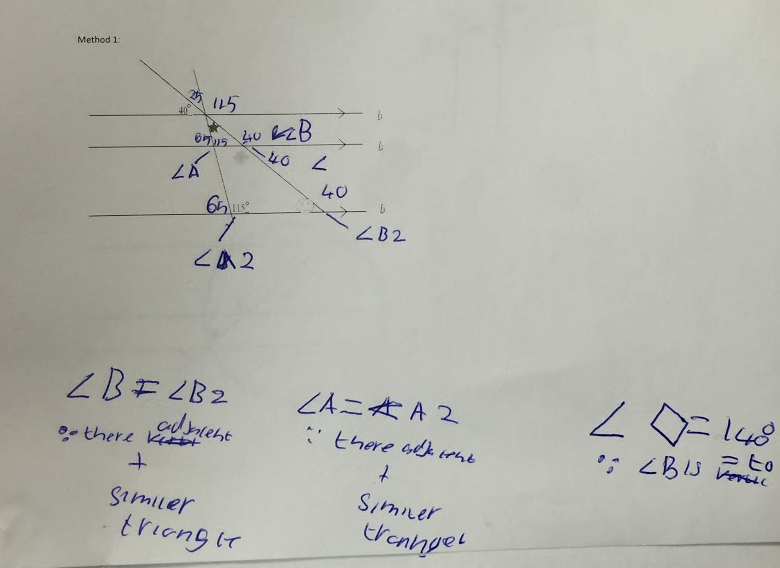 Method 1:
25
40° 115
65 115 40 ∠B
∠A 40 ∠
40
65 115°
∠B2
∠A2
∠B = ∠B2
∵ there adjacent
+
similer
triangle
∠A = A2
∵ there adjacent
+
similer
∠ ◇ = 140°
∵ ∠B is = to